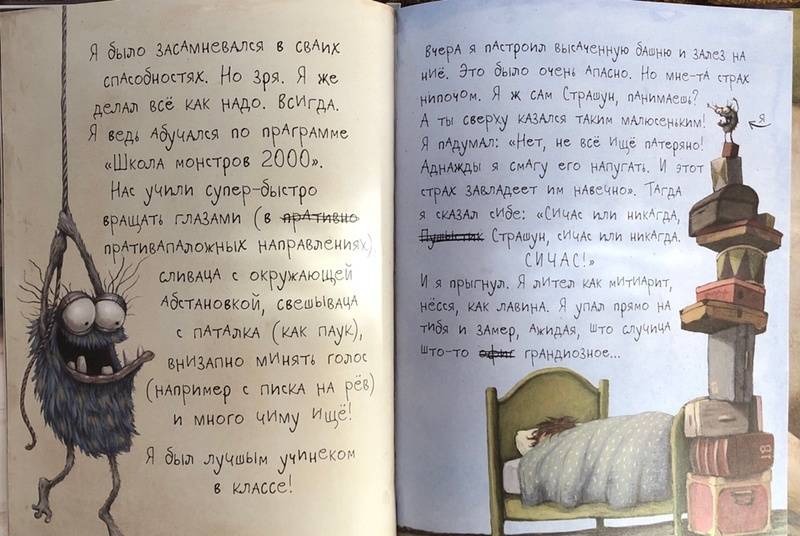 Я было засамневался в сваих
способностях. Но зря. Я же
делал всё как надо. Всигда.
Я ведь абучался по праграмме
«Школа монстров 2000».
Нас учили супер-быстро
вращать глазами (в пративно
пративапаложных направлениях),
сливаца с окружающей
абстановкой, свешываца
с паталка (как паук),
внизапно минять голос
(например с писка на рёв)
и много чиму ищё!
Я был лучшым учинеком
в классе!
Вчера я пастроил высаченную башню и залез на
ниё. Это было очень апасно. Но мне-та страх
нипочом. Я ж сам Страшун, панимаешь?
А ты сверху казался таким малюсеньким!
Я падумал: «Нет, не всё ищё патеряно!
Аднажды я смагу его напугать. И этот
страх завладеет им навечно». Тагда
я сказал сибе: «Сичас или никагда,
Страшун, сичас или никагда.
СИЧАС!»
И я прыгнул. Я лител как митиарит,
нёсся, как лавина. Я упал прямо на
тибя и замер, ажидая, што случица
што-то грандиозное...
Я
18